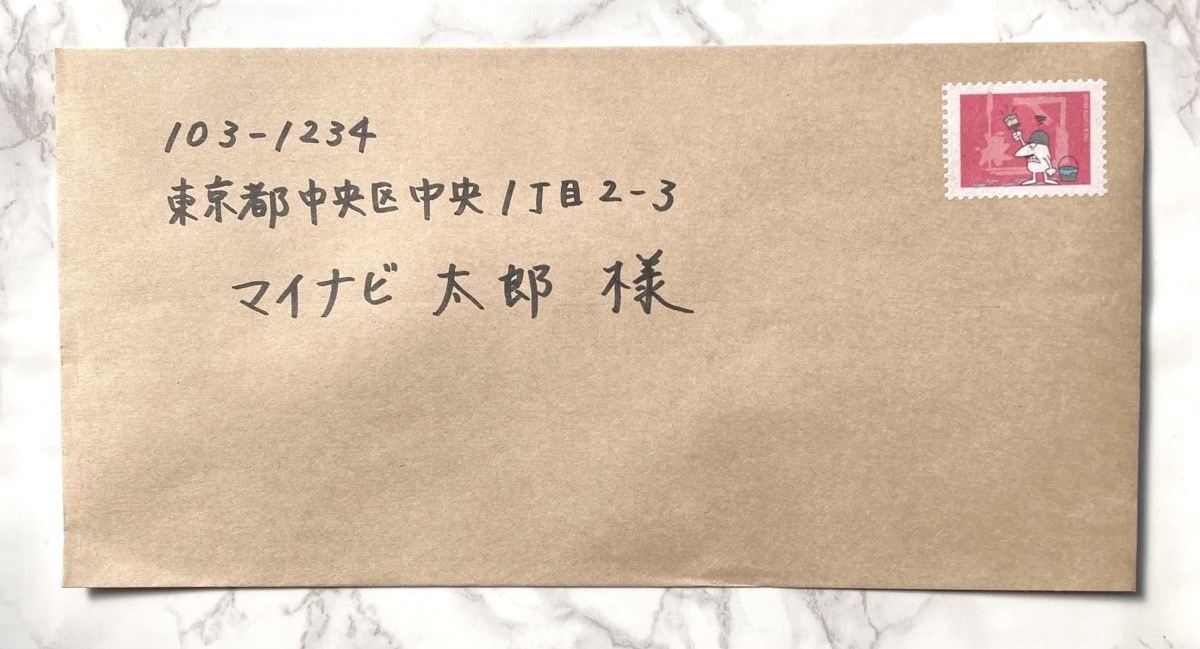 103-1234
東京都中央区中央1丁目2-3
マイナビ 太郎 様